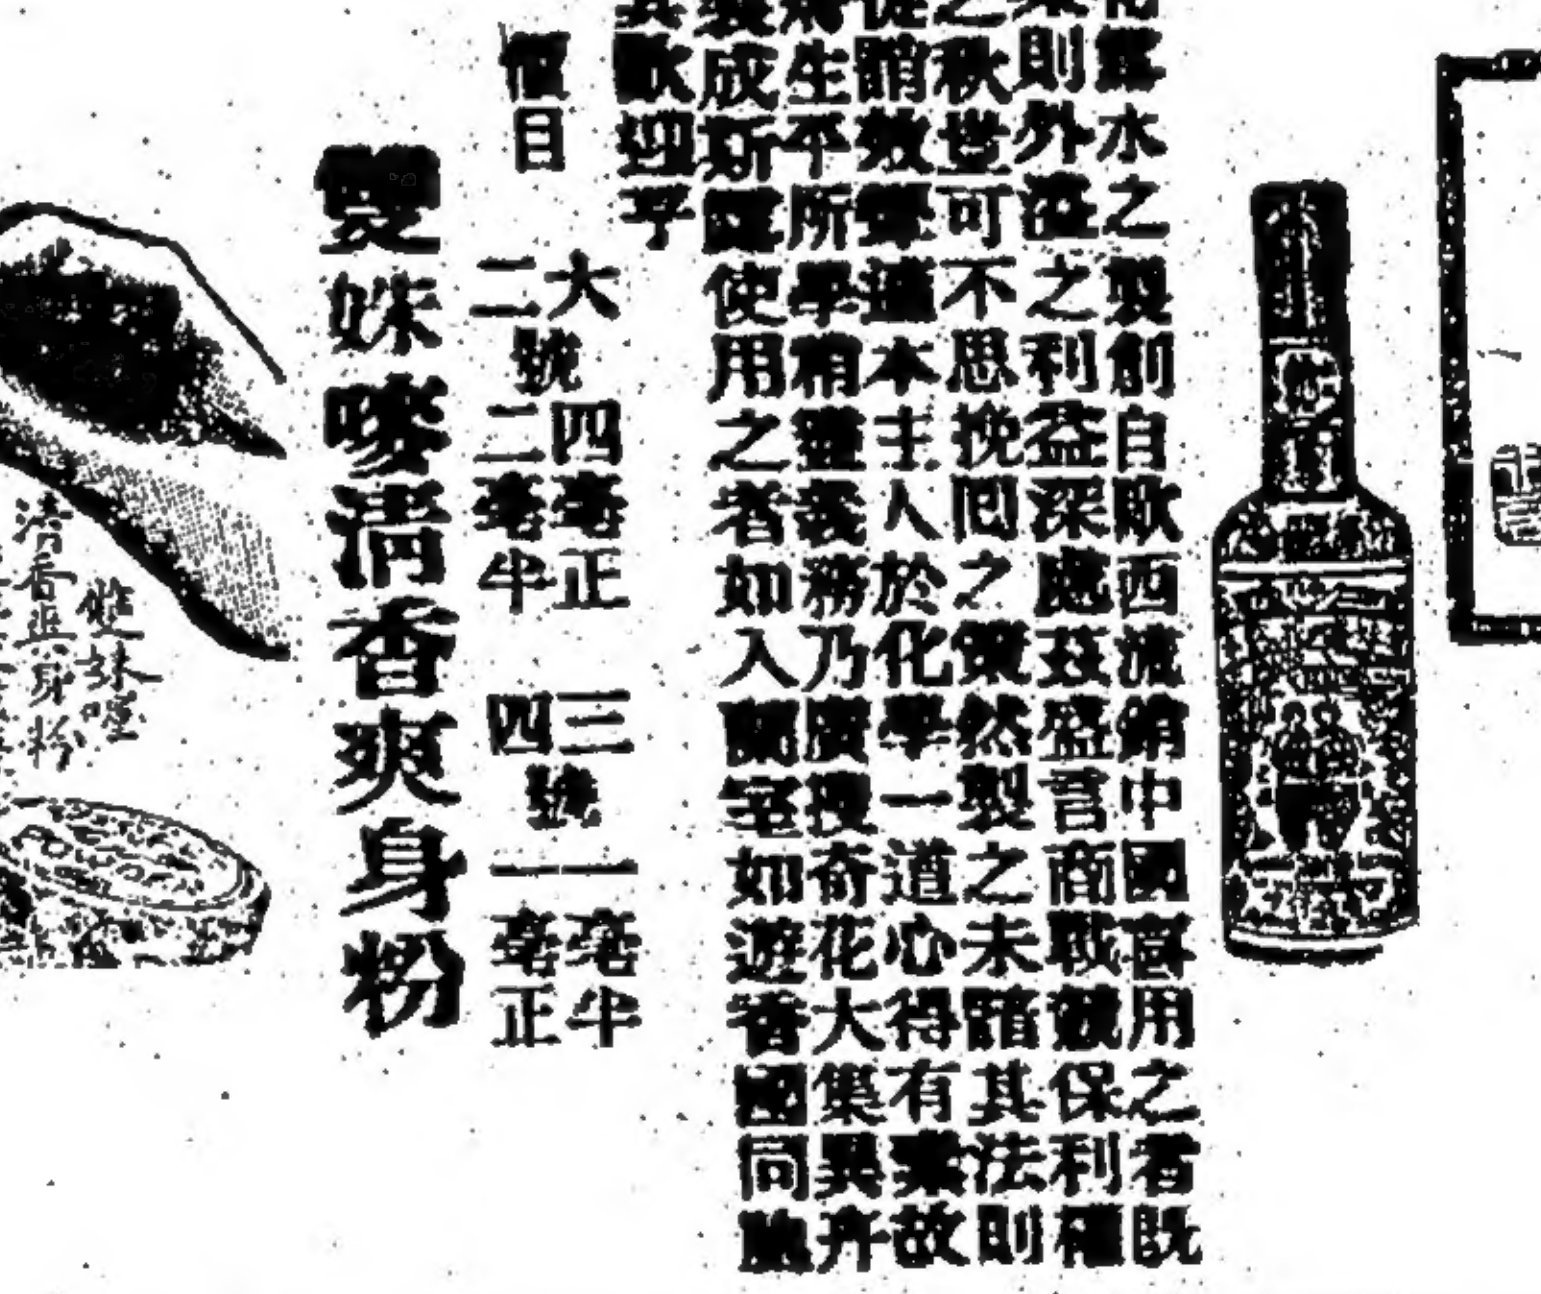 水之製創自歐西流銷中國喜用之者既
則外溢之利益深處茲盛言商戰競保利權
之秋世可不思挽回之策然製之未諳其法則
從效顰本主人於化學一道心得有素故
生平所學精靈義務乃廣搜奇花大集異卉
製成斯露使用之者如入蘭室如遊香國同胞
其歡迎乎
價目
大四毫正 三一毫半
號
二二毫半 四一毫正
雙妹嘜清香爽身粉
雙妹嘜
清香爽身粉